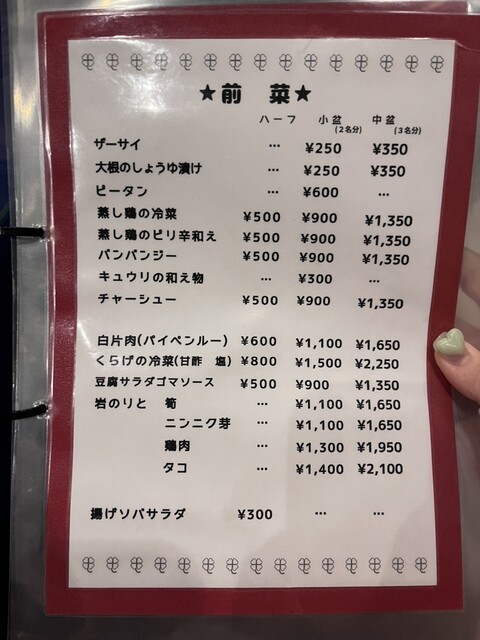 ★前 菜★
ハーフ 小盆(2名分) 中盆(3名分)
ザーサイ … ¥250 ¥350
大根のしょうゆ漬け … ¥250 ¥350
ピータン … ¥600 …
蒸し鶏の冷菜 ¥500 ¥900 ¥1,350
蒸し鶏のピリ辛和え ¥500 ¥900 ¥1,350
バンバンジー ¥500 ¥900 ¥1,350
キュウリの和え物 … ¥300 …
チャーシュー ¥500 ¥900 ¥1,350
白片肉(パイペンルー) ¥600 ¥1,100 ¥1,650
くらげの冷菜(甘酢 塩) ¥800 ¥1,500 ¥2,250
豆腐サラダゴマソース ¥500 ¥900 ¥1,350
岩のりと 筍 … ¥1,100 ¥1,650
ニンニク芽 … ¥1,100 ¥1,650
鶏肉 … ¥1,300 ¥1,950
タコ … ¥1,400 ¥2,100
揚げソバサラダ ¥300 … …